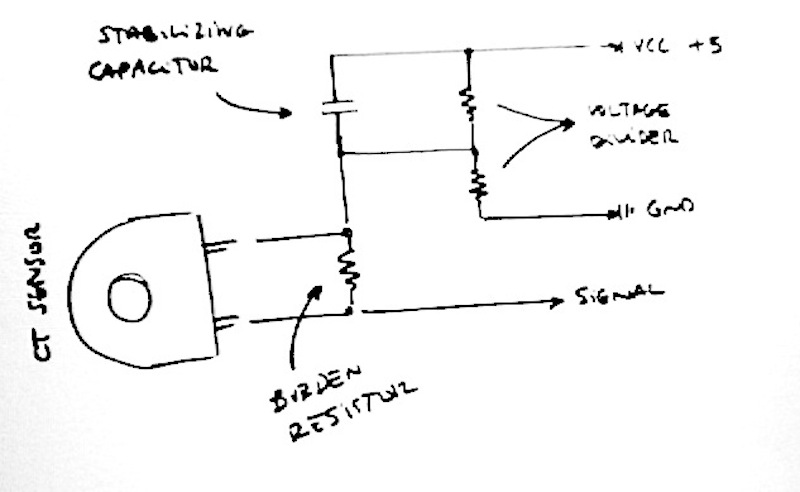 STABILIZING
CAPACITOR
VCC +5
VOLTAGE
DIVIDER
GND
CT SENSOR
SIGNAL
BURDEN
RESISTOR